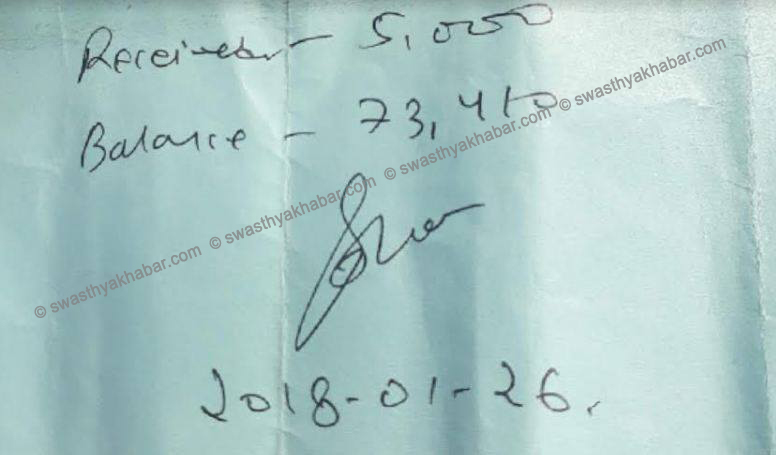 Received - 5,000
Balance - 73,410
© swasthyakhabar.com © swasthyakhabar.com © swasthyakhabar.com © swasthyakhabar.com
2018-01-26.